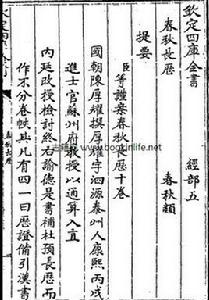 欽定四庫全書 經部五
春秋長歷 春秋類
提要
臣等謹案春秋長歷十卷
國朝陳厚耀撰厚耀字泗源泰州人康熙丙戌
進士官蘇州府教授以通算入直
内廷改授檢討終右諭德是書補杜預長歷而
作不分卷帙其凡有四一曰歷證備引漢書
春秋長歷